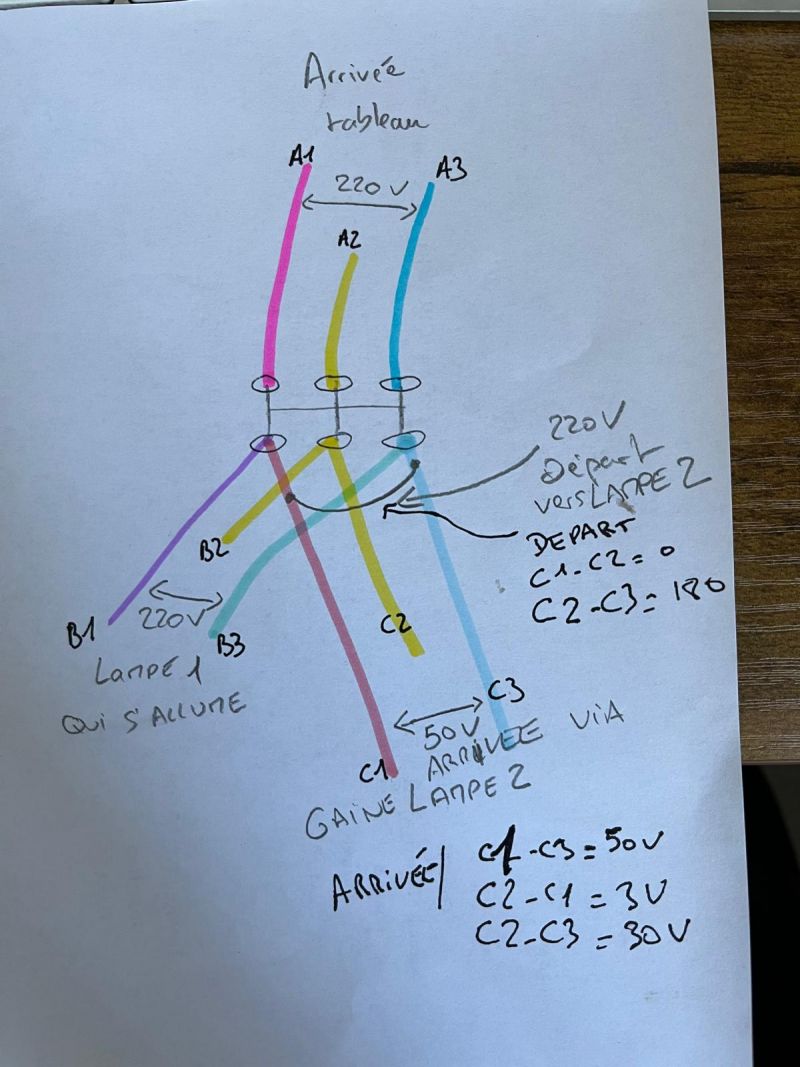 Arrivée
tableau
A1
A3
220V
A2
220V
Départ
vers LAMPE 2
DEPART
C1-C2 = 0
C2-C3 = 180
B2
B1
220V
B3
C2
LAMPE 1
QUI S'ALLUME
C3
50V
C1
ARRIVEE VIA
GAINE LAMPE 2
ARRIVÉE/
C1-C3 = 50V
C2-C1 = 3V
C2-C3 = 30V